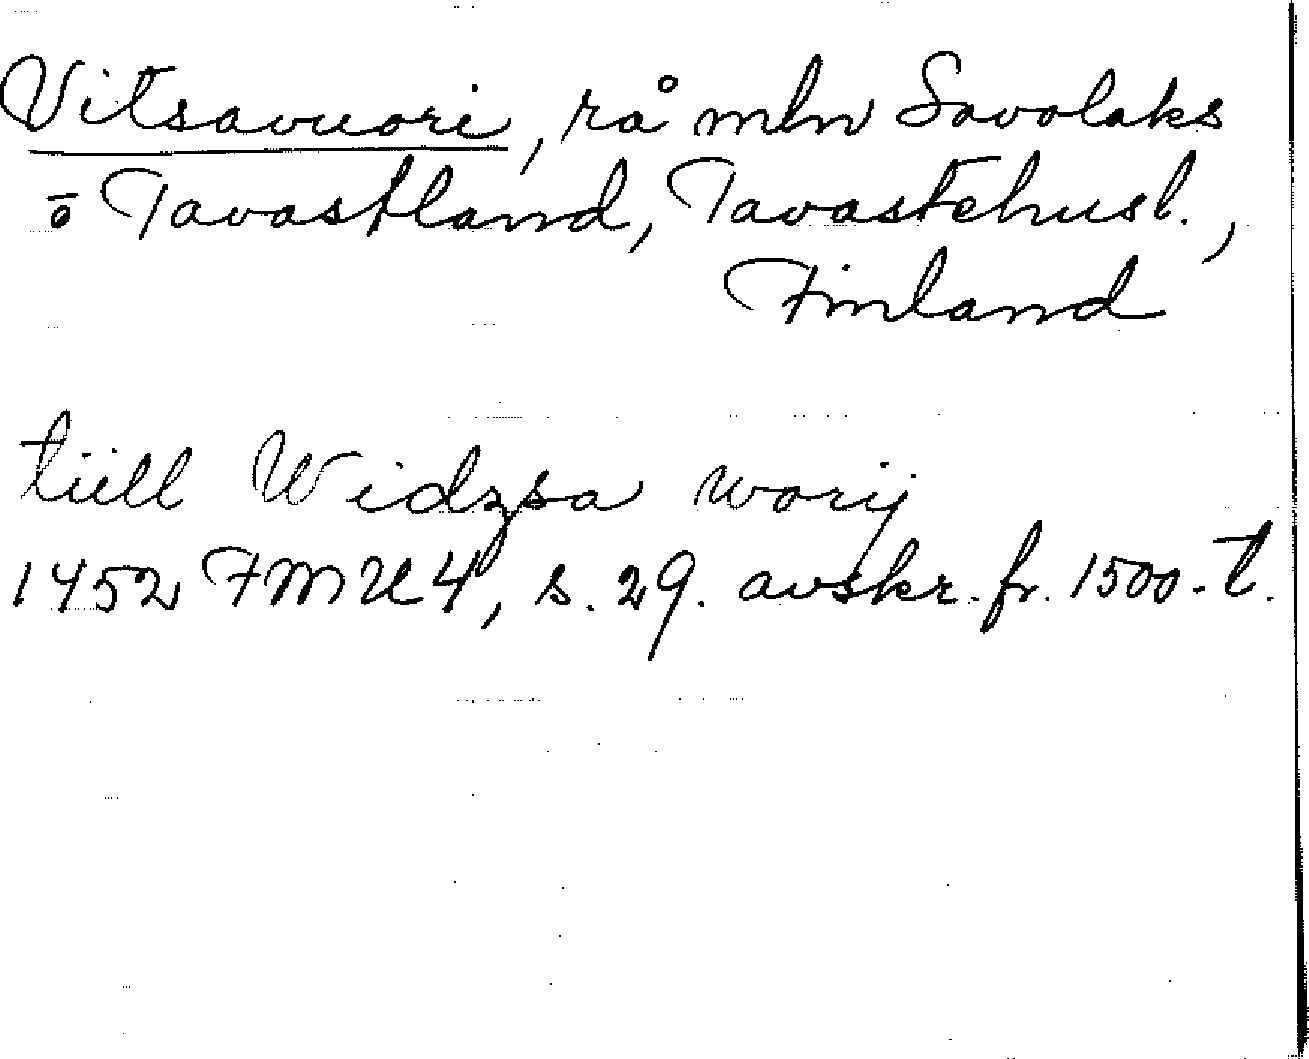 Vitsavuori, rå mln Savolaks
o Tavastland, Tavastehusl.,
Finland
tiill Widzsa worij
1452 FMU 4, s. 29. avskr. fr. 1500-t.